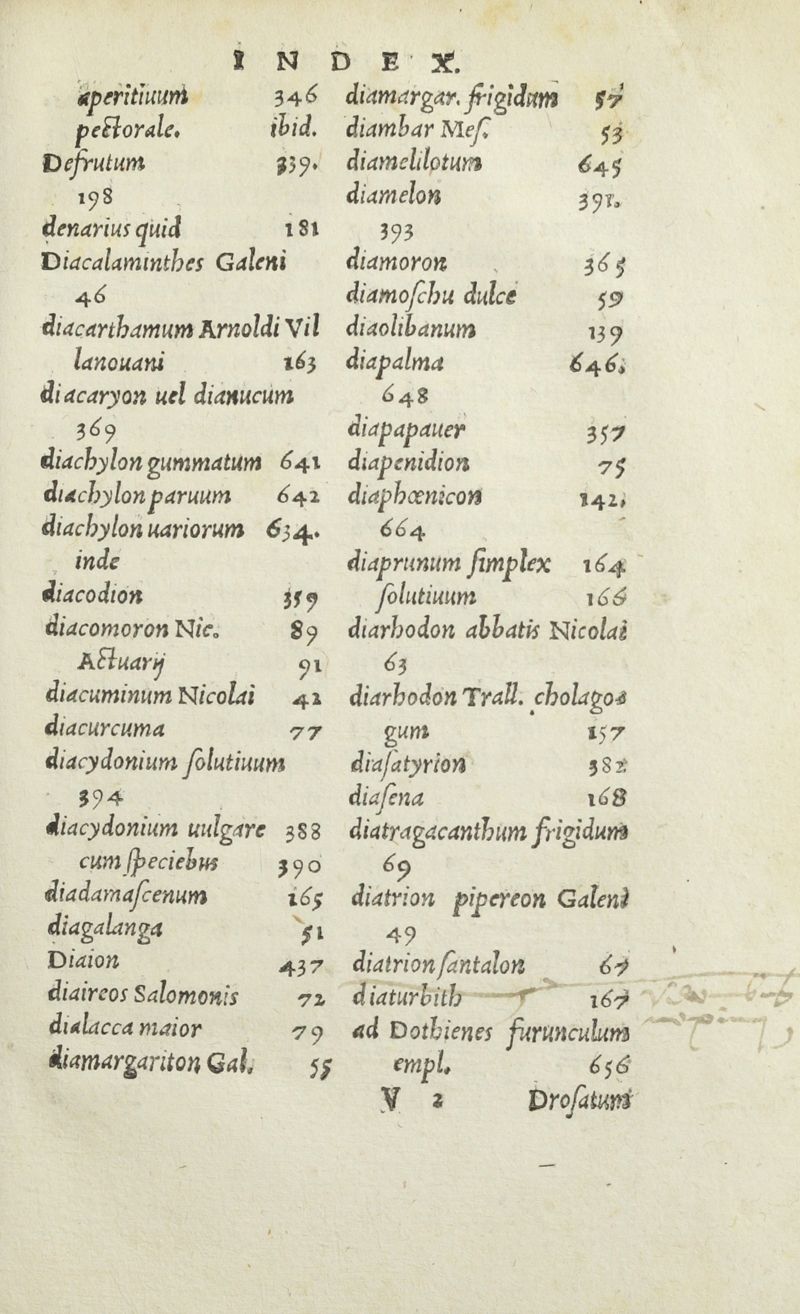 INDEX.
aperitiuum 346
pectorale. ibid.
Defrutum 339.
198
denarius quid 181
Diacalaminthes Galeni
46
diacarthamum Arnoldi Vil
lanouani 163
diacaryon uel dianucum
369
diachylon gummatum 641
diachylon paruum 642
diachylon uariorum 634.
inde
diacodion 359
diacomoron Nic. 89
Actuarij 91
diacuminum Nicolai 42
diacurcuma 77
diacydonium ſolutiuum
394
diacydonium uulgare 388
cum ſpeciebus 390
diadamaſcenum 165
diagalanga 51
Diaion 437
diaireos Salomonis 72
dialacca maior 79
diamargariton Gal. 55
diamargar. frigidum 57
diambar Meſ. 53
diamelilotum 645
diamelon 391.
393
diamoron 365
diamoſchu dulce 59
diaolibanum 139
diapalma 646.
648
diapapauer 357
diapenidion 75
diaphœnicon 142.
664
diaprunum ſimplex 164
ſolutiuum 166
diarhodon abbatis Nicolai
63
diarhodon Trall. cholagos
gum 157
diaſatyrion 382
diaſena 168
diatragacanthum frigidum
69
diatrion pipereon Galeni
49
diatrion ſantalon 67
diaturbith 167
ad Dothienes furunculum
empl. 656
V 2 Droſatum